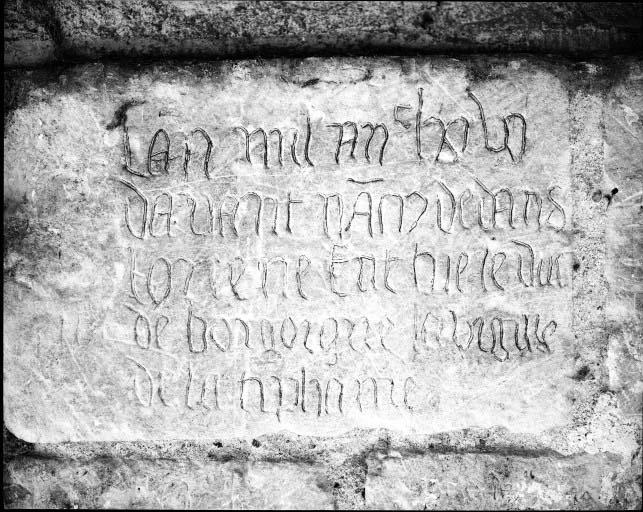 lan mil iiii c lxx
davant nācy dedans
lorrene fut thue le duc
de borgoigne la vigille
de la tiphanie